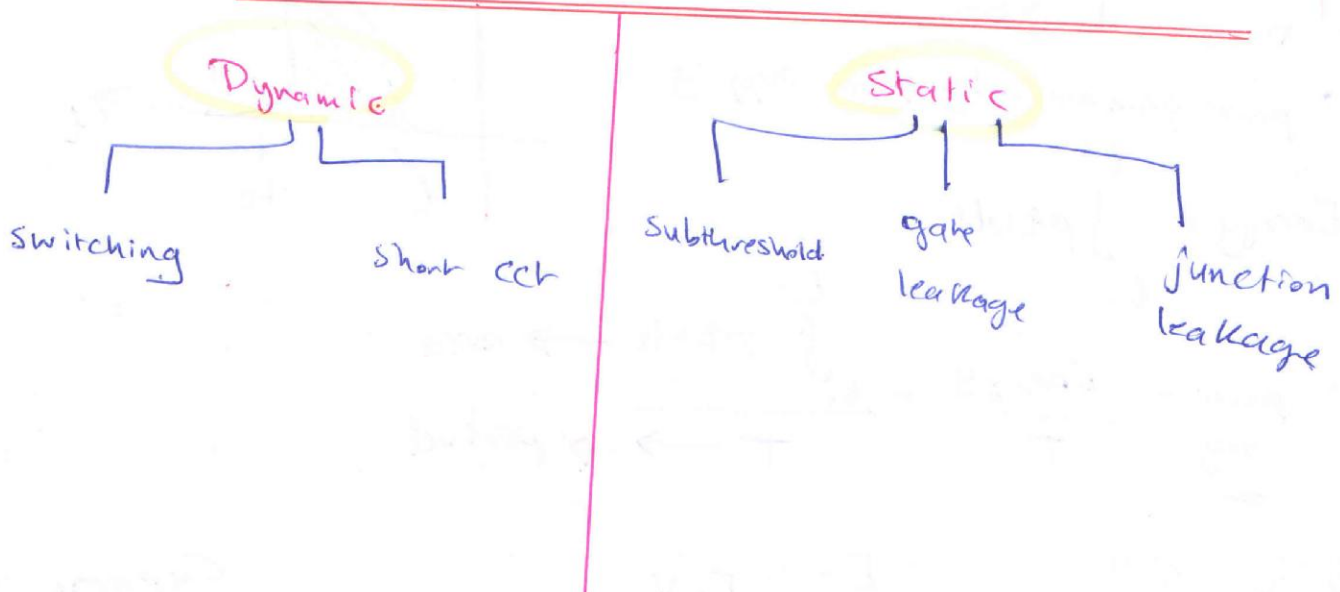 Dynamic
switching
short cct
Static
subthreshold
gate
leakage
junction
leakage